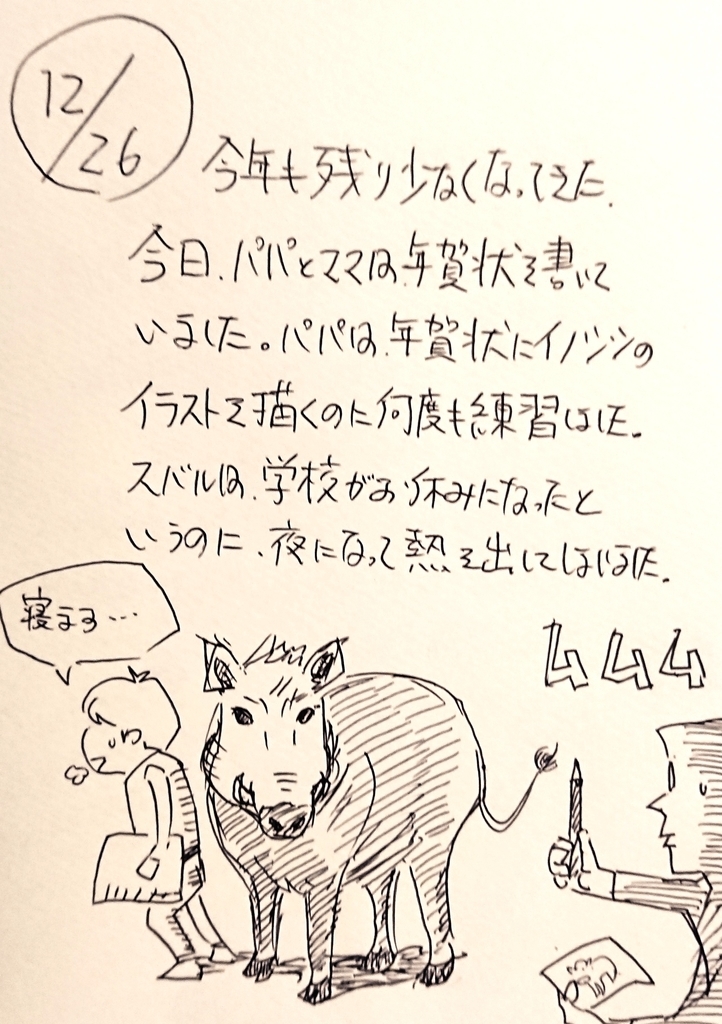 12/26
今年も残り少なくなってきた。
今日、パパとママは、年賀状を書いて
いました。パパは、年賀状にイノシシの
イラストを描くのに何度も練習した。
スバルは、学校がお休みになったと
いうのに、夜になって熱を出してしまった。
寝まる…
ムムム